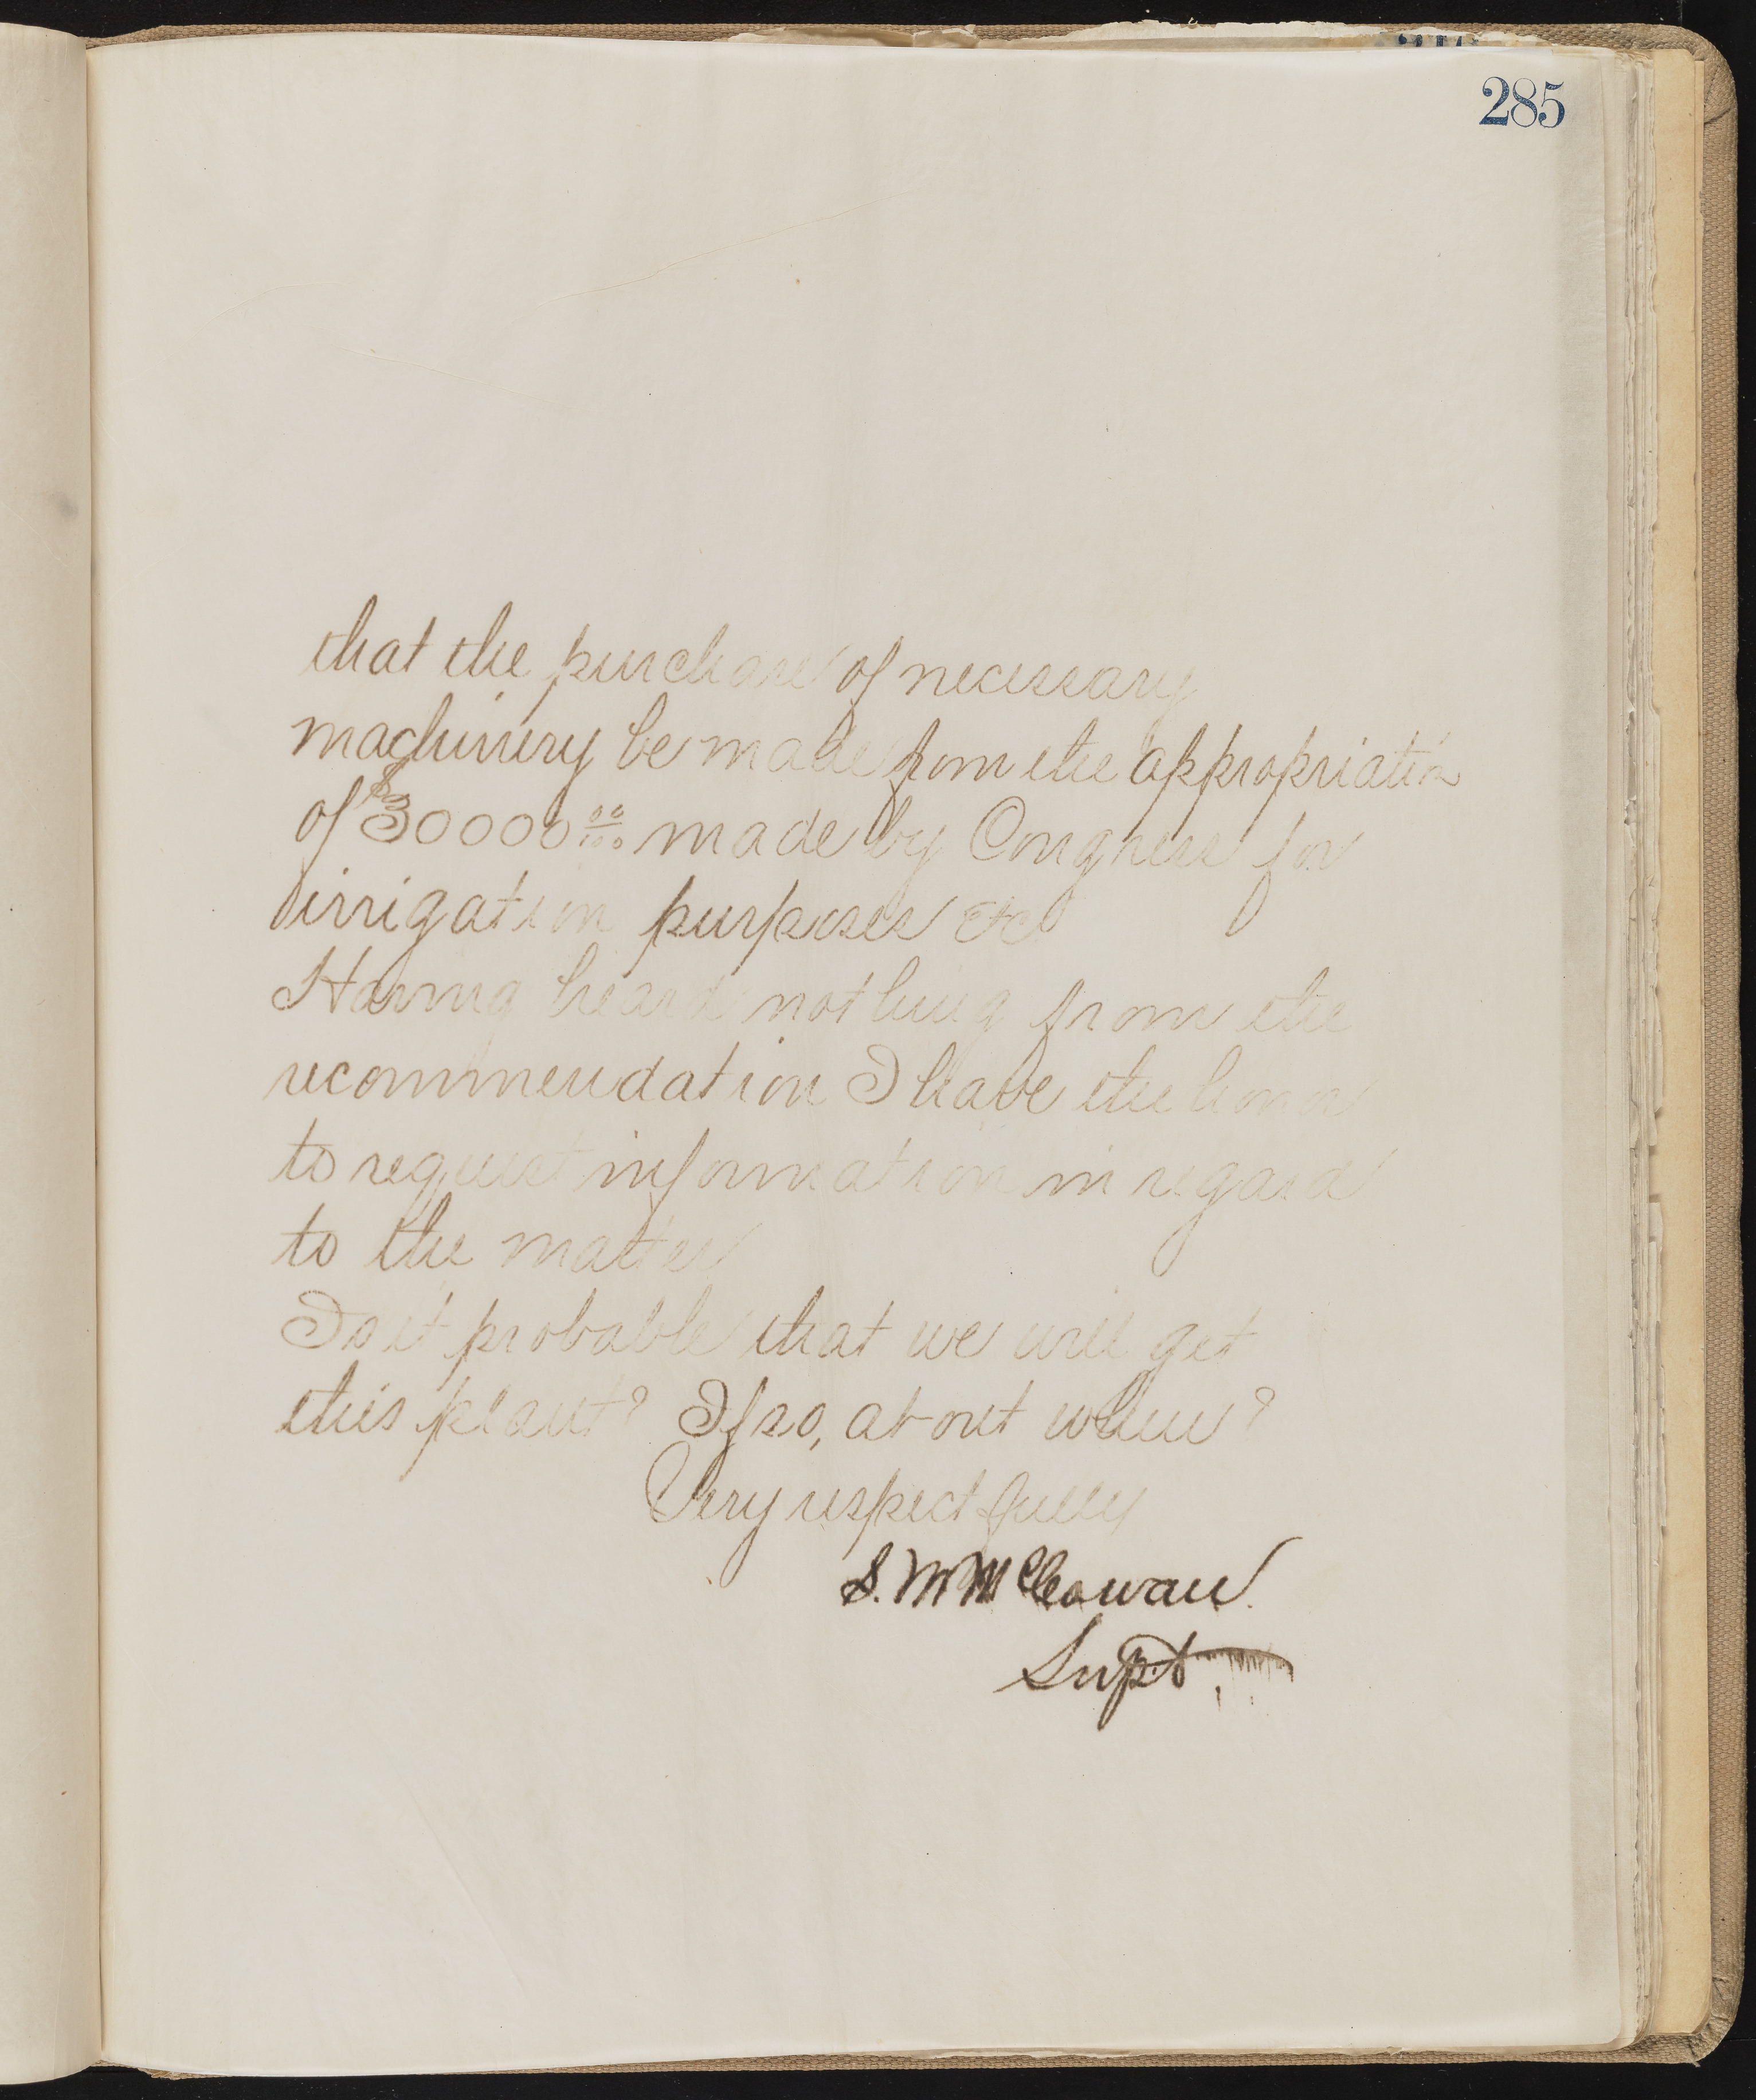 285
that the purchase of necessary
machinery be made from the appropriation
of $30000 00/100 made by Congress for
irrigation purposes etc
Having heard nothing from the
recommendation I have the honor
to request information in regard
to the matter
Is it probable that we will get
this plant? If so, about when?
Very respectfully
S. M. McCowan.
Supt.